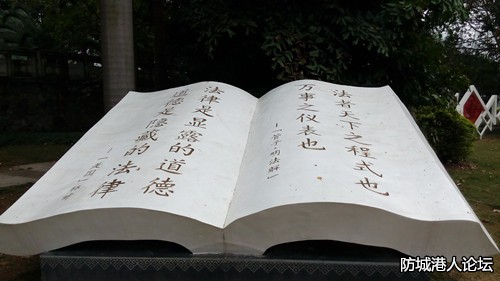 法者天下之程式也
万事之仪表也
—《管子·明法解》
法律是显露的道德
道德是隐藏的法律
—［美国］林肯
防城港人论坛